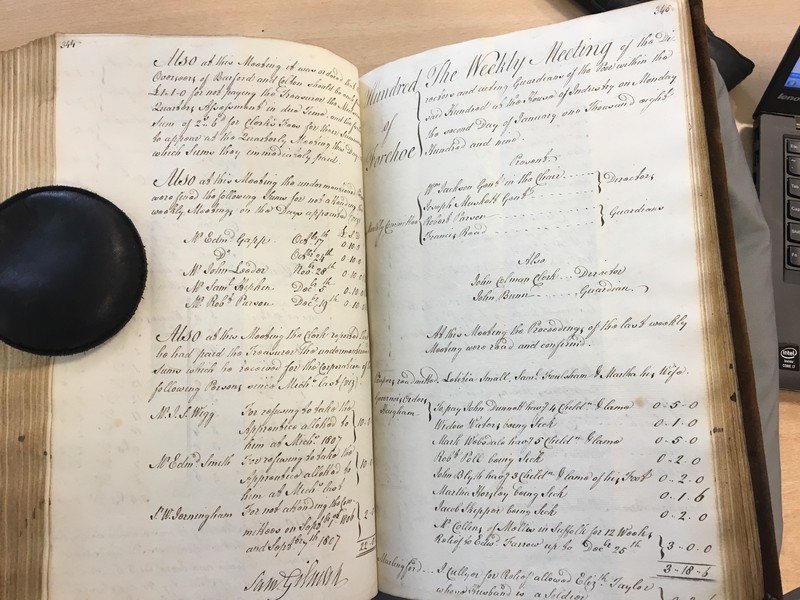 344
Also at this Meeting it was ordered that
Overseers of Barford and Colton should be
£1-1-0 for not paying the Treasurer the
Quarters Assessment in due Time and the
Sum of 2s. 6d. for Clerk's Fees for their
to appear at the Quarterly Meeting this Day
which Sums they immediately paid.
Also at this Meeting the undermentioned
were fined the following Sums for not attending the
weekly Meetings on the Days appointed
£ s d
Mr. Edmd. Gapp Octr. 17th 0.10.0
Do. Octr. 24th 0.10.0
Mr. John Leeder Novr. 28th 0.10.0
Mr. Saml. Kiphen Decr. 5th 0.10.0
Mr. Robt. Parson Decr. 19th 0.10.
Also at this Meeting the Clerk reported
he had paid the Treasurer the undermentioned
Sums which he received for the Corporation of the
following Persons since Mich's last (vizt.)
Mr. J. S. Wigg For refusing to take the
Apprentice allotted to
him at Mich's 1807 10
Mr. Edmd. Smith For refusing to take the
Apprentice allotted to
him at Mich's last 10
Sr. W. Jerningham For not attending the Com
mittees on Septr. 1806
and Septr. 1807 2
22
345
Hundred of Forehoe
The Weekly Meeting of the Di
rectors and acting Guardians of the Poor within the
said Hundred at the House of Industry on Monday
the second Day of January one Thousand eight
Hundred and nine.
Present
Weekly Committee
Wm. Jackson Gent. in the Chair
Joseph Muskett Gent. Directors
Robert Parson
Francis Read Guardians
Also
John Colman Clerk Director
John Bunn Guardian
At this Meeting the Proceedings of the last weekly
Meeting were read and confirmed.
Paupers readmitted. Letitia Small, Saml. Foulsham & Martha his Wife.
Guardians Orders
Hingham To pay John Dunnett havg. 4 Childn. & lame 0-5-0
Widow Waters being Sick 0-1-0
Mark Websdale havg. 5 Childn. & lame 0-5-0
Robt. Pell being Sick 0-2-0
John Blyth havg. 3 Childn. & lame of his Foot 0-2-0
Martha Horsley being Sick 0-1-6
Jacob Skipper being Sick 0-2-0
Mr. Collins of Mellis in Suffolk for 12 Weeks
Relief to Edwd. Farrow up to Decr. 25th 3-0-0
3-18-6
Marlingford J. Cullyer for Relief allowed Elizth. Taylor
whose Husband is a Soldier
Saml. Gilman
lenovo
intel
inside
CORE i7